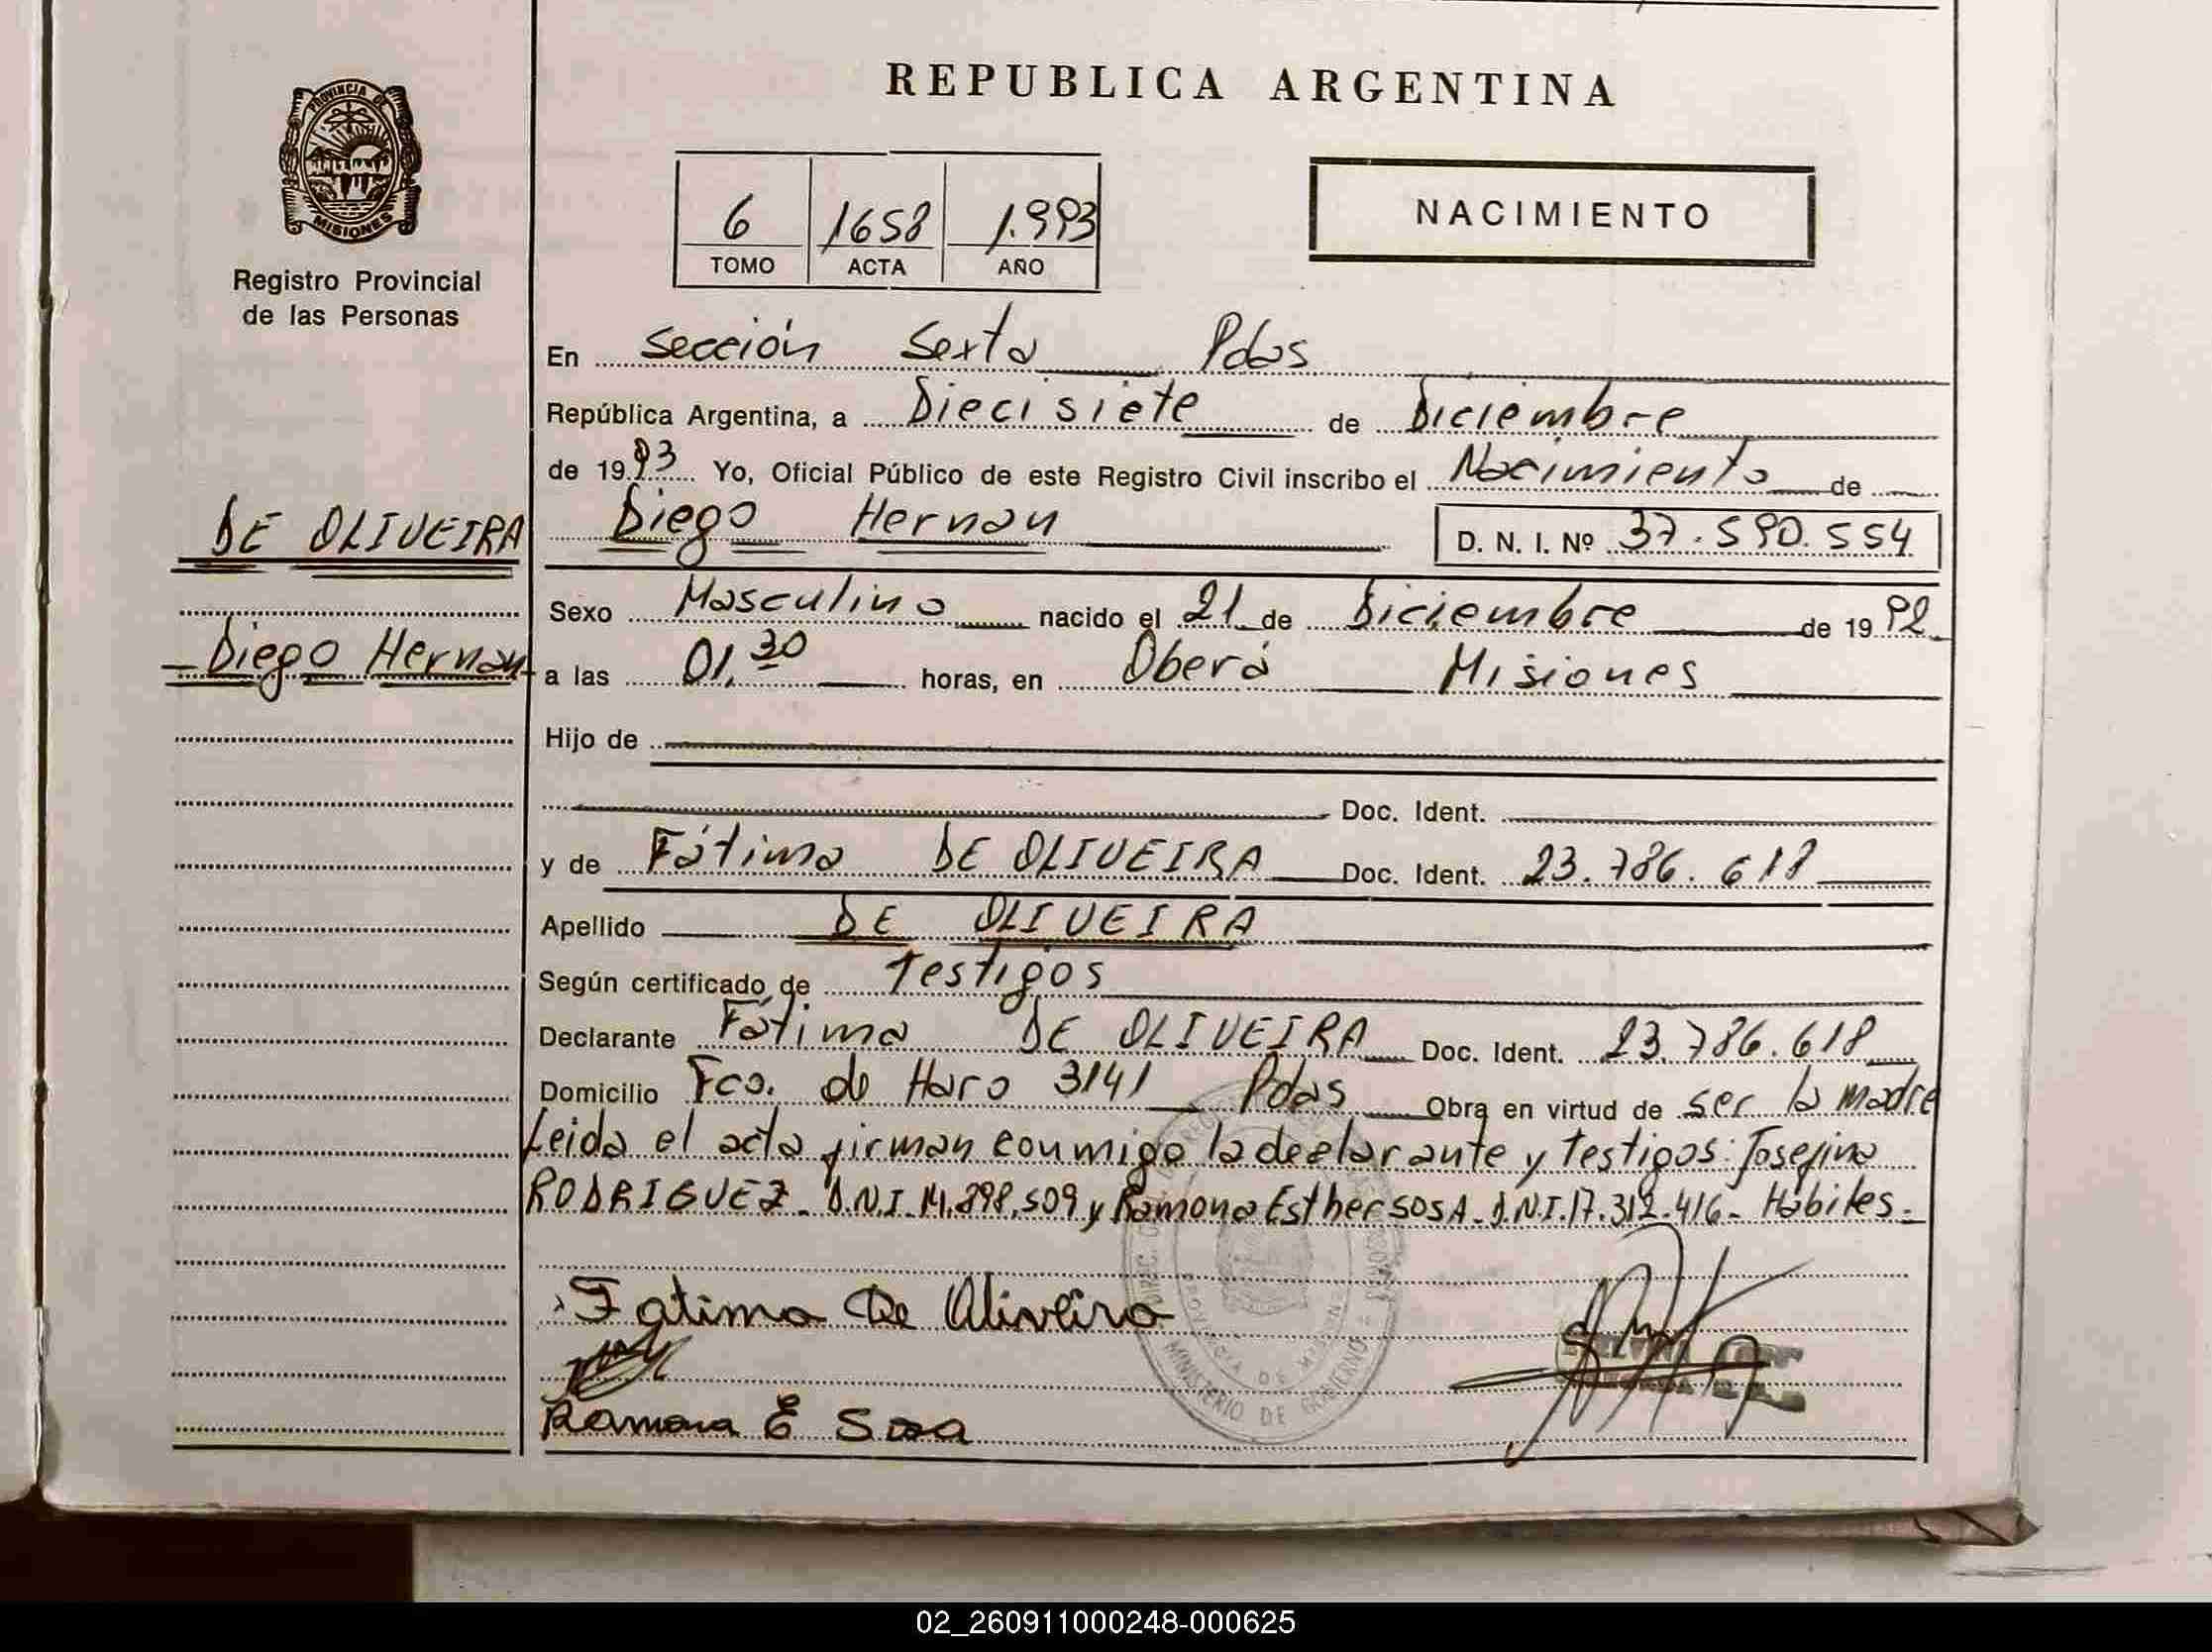 REPUBLICA ARGENTINA
PROVINCIA DE
MISIONES
Registro Provincial
de las Personas
6 1658 1.993
TOMO ACTA AÑO
NACIMIENTO
En Sección Sexta Pdas
República Argentina, a Diecisiete de Diciembre
de 1993 Yo, Oficial Público de este Registro Civil inscribo el Nacimiento de
DE OLIVEIRA
Diego Hernan D. N. I. Nº 37.590.554
Sexo Masculino nacido el 21 de Diciembre de 1992
Diego Hernan
a las 01,30 horas, en Oberá Misiones
Hijo de
Doc. Ident.
y de Fátima DE OLIVEIRA Doc. Ident. 23.786.618
Apellido DE OLIVEIRA
Según certificado de Testigos
Declarante Fátima DE OLIVEIRA Doc. Ident. 23.786.618
Domicilio Fco. de Haro 3141 Pdas Obra en virtud de ser la madre
Leida el acta firman conmigo la declarante y testigos: Josefina
RODRIGUEZ. D.N.I. 14.898.509 y Ramona Esther SOSA. D.N.I. 17.312.416- Hábiles.-
Fatima De Oliveira
Ramona E Sosa
MINISTERIO DE GOBIERNO
PROVINCIA DE MISIONES
02_260911000248-000625